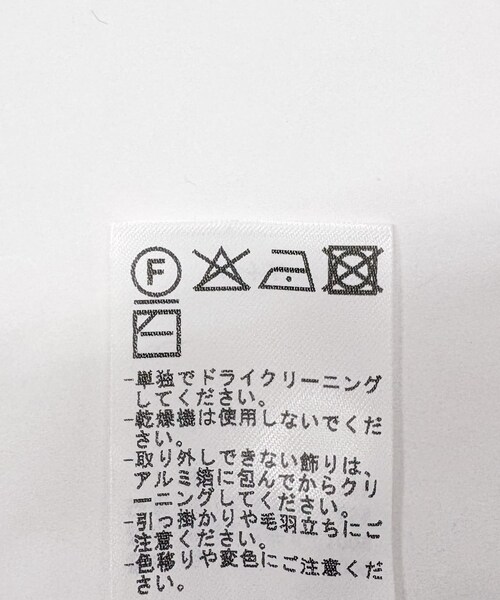 F
-単独でドライクリーニング
してください。
-乾燥機は使用しないでくだ
さい。
-取り外しできない飾りは、
アルミ箔に包んでからクリ
ーニングしてください。
-引っ掛かりや毛羽立ちにご
注意ください。
-色移りや変色にご注意くだ
さい。